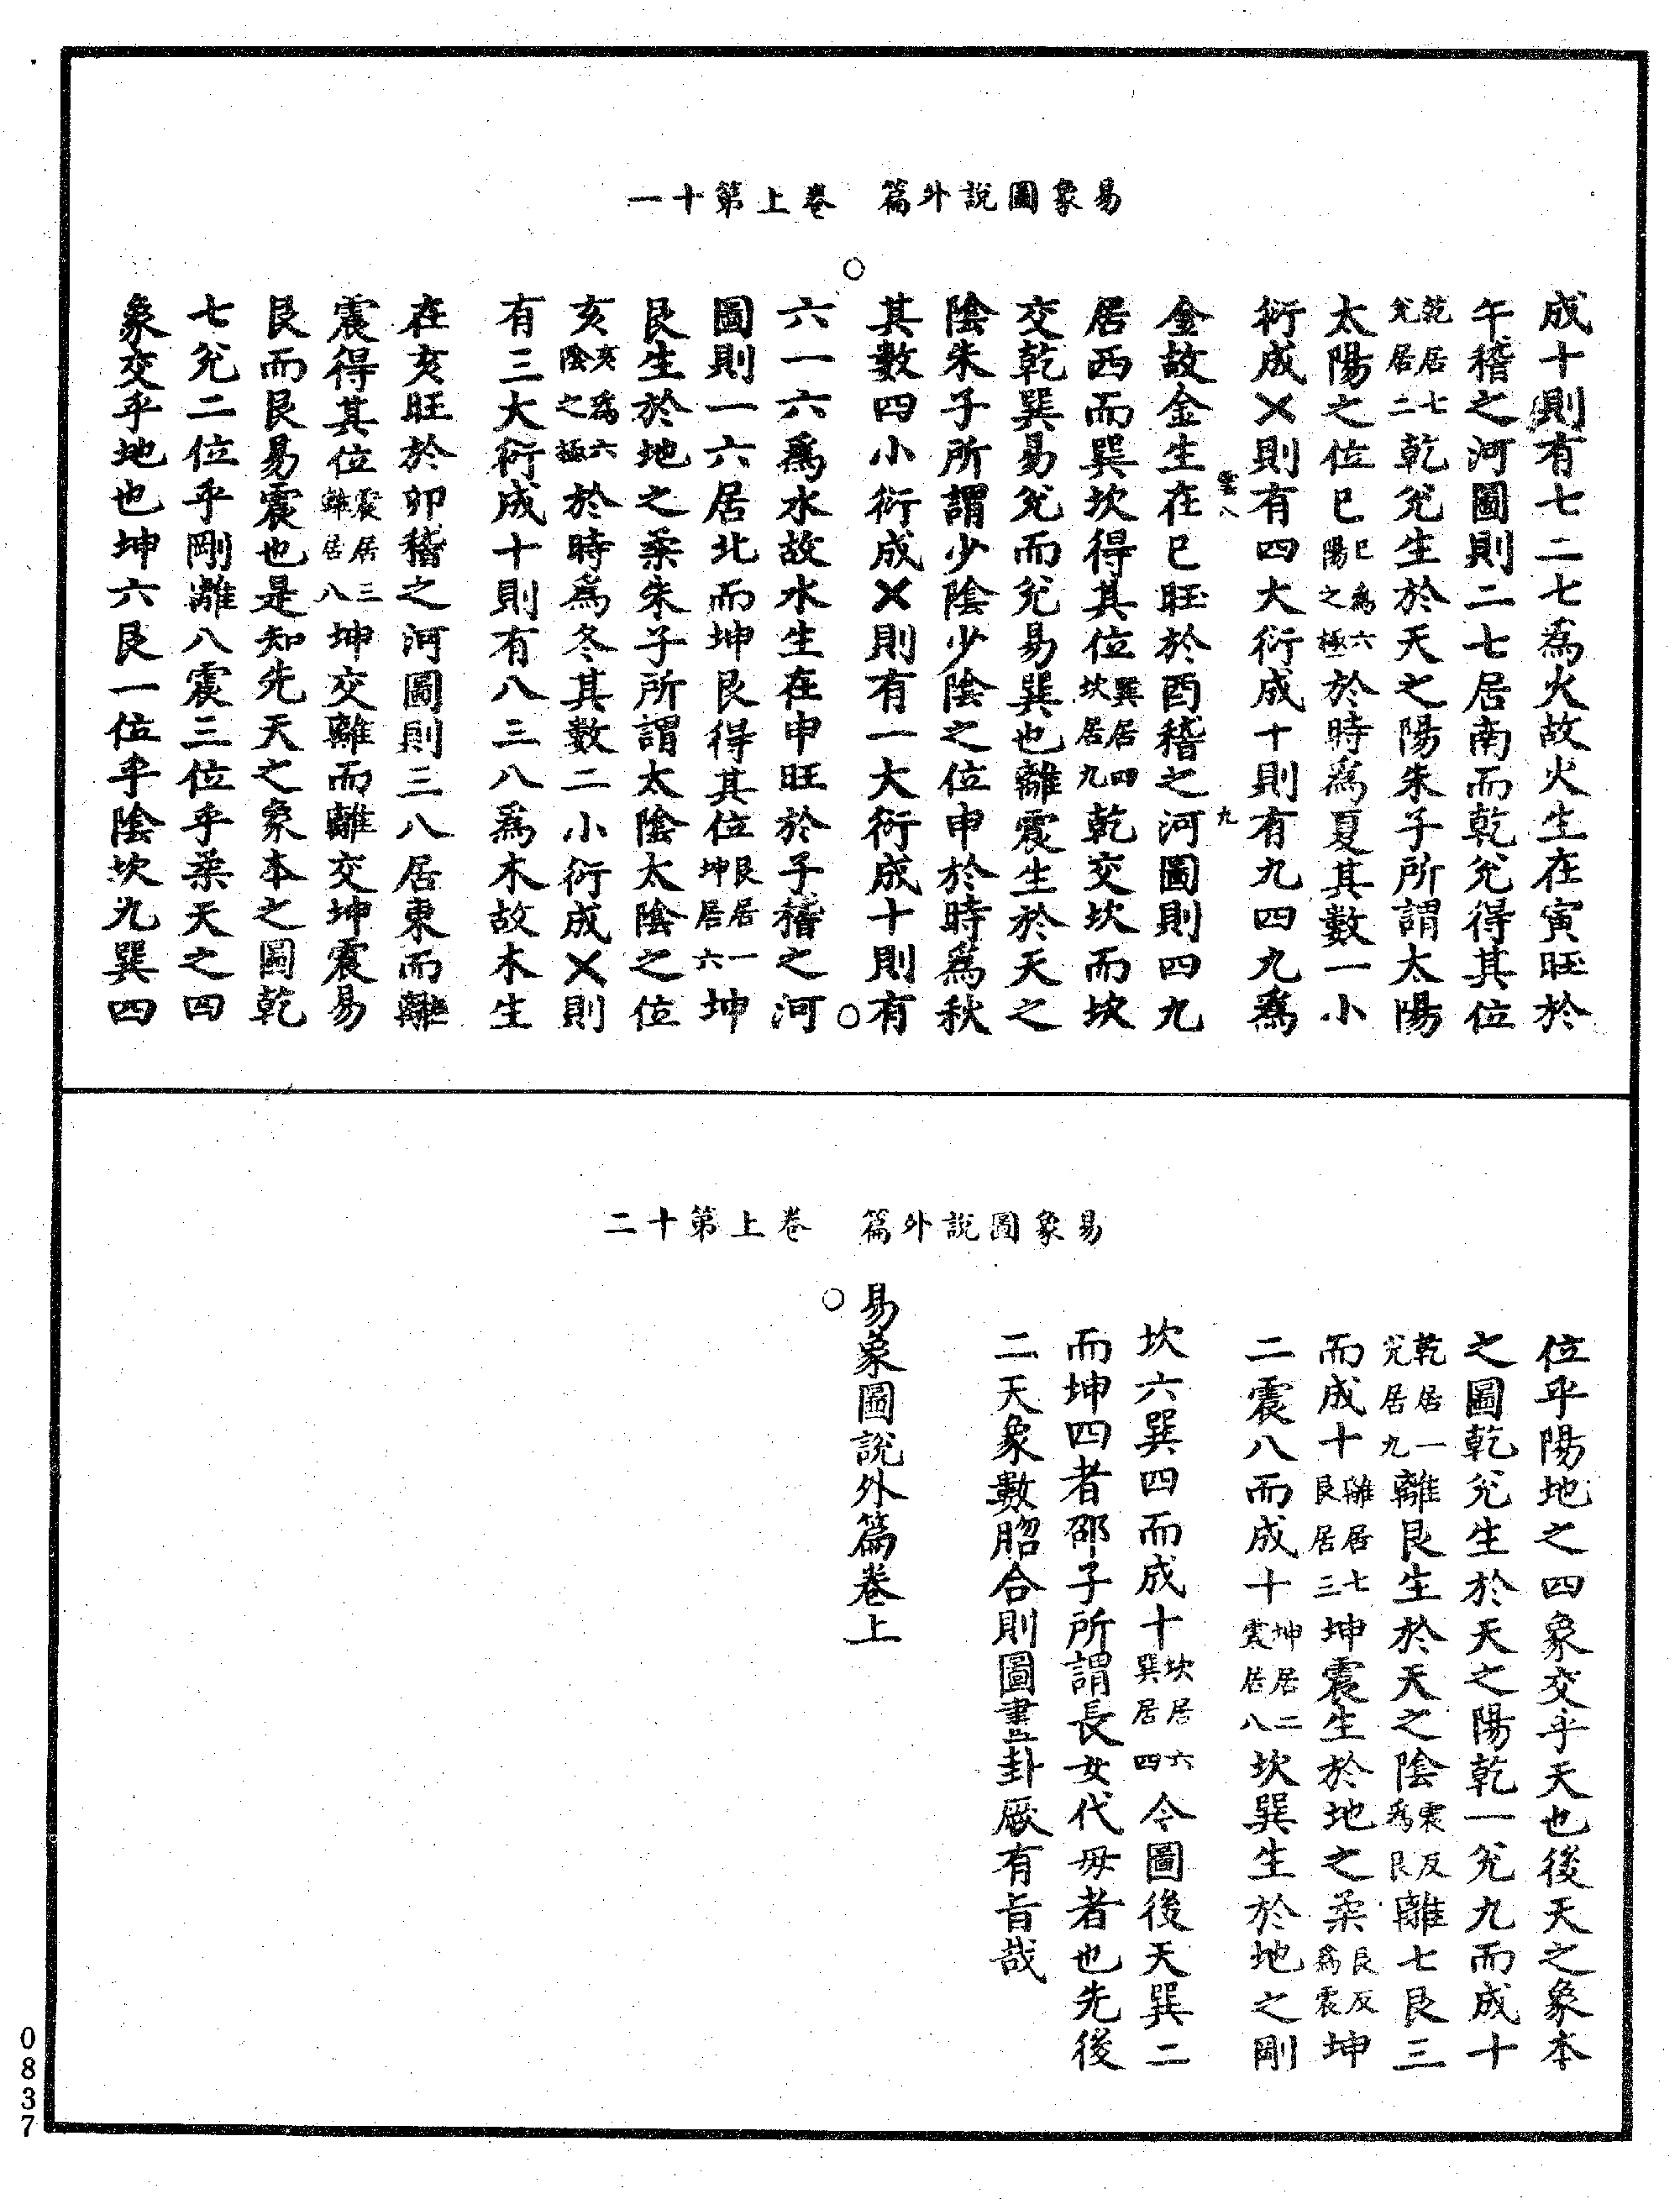 易象圖說外篇　卷上第十一
成十則有七二七為火故火生在寅旺於
午稽之河圖則二七居南而乾兊得其位
乾居七兊居二乾兊生於天之陽朱子所謂太陽
太陽之位巳巳為六陽之極於時為夏其數一小
衍成㐅則有四大衍成十則有九四九為
雲八　九
金故金生在巳旺於酉稽之河圖則四九
居西而巽坎得其位巽居四坎居九乾交坎而坎
交乾巽易兊而兊易巽也離震生於天之
陰朱子所謂少陰少陰之位申於時為秋
其數四小衍成㐅則有一大衍成十則有
六一六為水故水生在申旺於子稽之河
圖則一六居北而坤艮得其位艮居一坤居六坤
艮生於地之柔朱子所謂太陰太陰之位
亥亥為六陰之極於時為冬其數二小衍成㐅則
有三大衍成十則有八三八為木故木生
在亥旺於卯稽之河圖則三八居東而離
震得其位震居三離居八坤交離而離交坤震易
艮而艮易震也是知先天之象本之圖乾
七兊二位乎剛離八震三位乎柔天之四
象交乎地也坤六艮一位乎陰坎九巽四
易象圖說外篇　卷上第十二
位乎陽地之四象交乎天也後天之象本
之圖乾兊生於天之陽乾一兊九而成十
乾居一兊居九離艮生於天之陰震反為艮離七艮三
而成十離居七艮居三坤震生於地之柔艮反為震坤
二震八而成十坤居二震居八坎巽生於地之剛
坎六巽四而成十坎居六巽居四今圖後天巽二
而坤四者邵子所謂長女代毋者也先後
二天象數脗合則圖畫卦厥有旨哉
易象圖說外篇卷上
0837